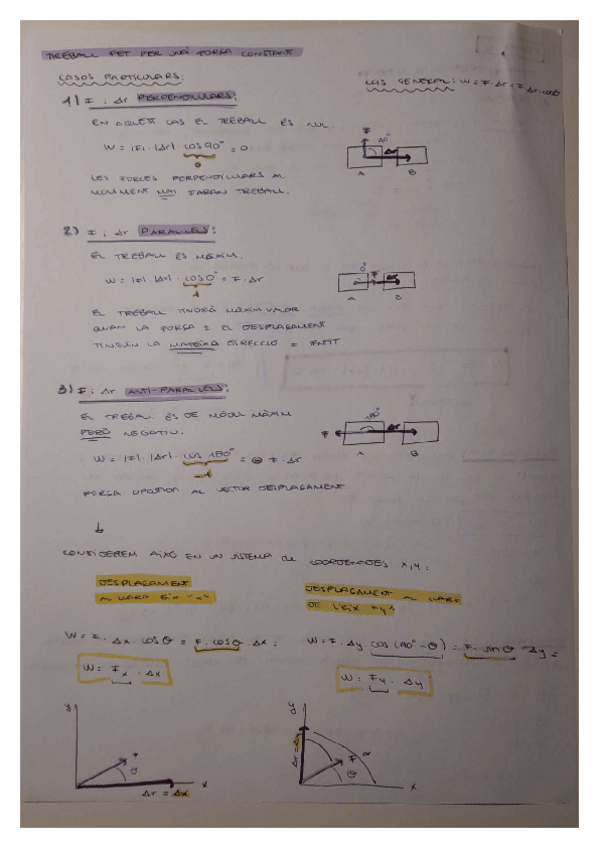 TREBALL FET PER UNA FORÇA CONSTANT
CASOS PARTICULARS:
CAS GENERAL: W = F · Δr = F Δr · cos θ
1) F i Δr PERPENDICULARS:
EN AQUEST CAS EL TREBALL ÉS NUL.
W = |F| · |Δr| · cos 90° = 0
0
LES FORCES PERPENDICULARS AL
MOVIMENT MAI FARAN TREBALL.
F 90° Δr
A B
2) F i Δr PARAL·LELS:
EL TREBALL ÉS MÀXIM.
W = |F| · |Δr| · cos 0° = F · Δr
1
0° F Δr
A B
EL TREBALL TINDRÀ MÀXIM VALOR
QUAN LA FORÇA I EL DESPLAÇAMENT
TINGUIN LA MATEIXA DIRECCIÓ I SENTIT
3) F i Δr ANTI-PARAL·LELS:
EL TREBALL ÉS DE MÒDUL MÀXIM
PERÒ NEGATIU.
W = |F| · |Δr| · cos 180° = - F · Δr
-1
F 180° Δr
A B
FORÇA OPOSADA AL VECTOR DESPLAÇAMENT
↓
CONSIDEREM AIXÒ EN UN SISTEMA de COORDENADES X, Y:
DESPLAÇAMENT
AL LLARG EIX "X"
DESPLAÇAMENT AL LLARG
DE L'EIX "Y"
W = F · Δx · cos θ = F · cos θ · Δx =
W = F · Δy · cos (90° - θ) = F · sin θ · Δy =
W = Fx · Δx
W = Fy · Δy
F θ x
Δr = Δx
y
Δr = Δy
F α θ x